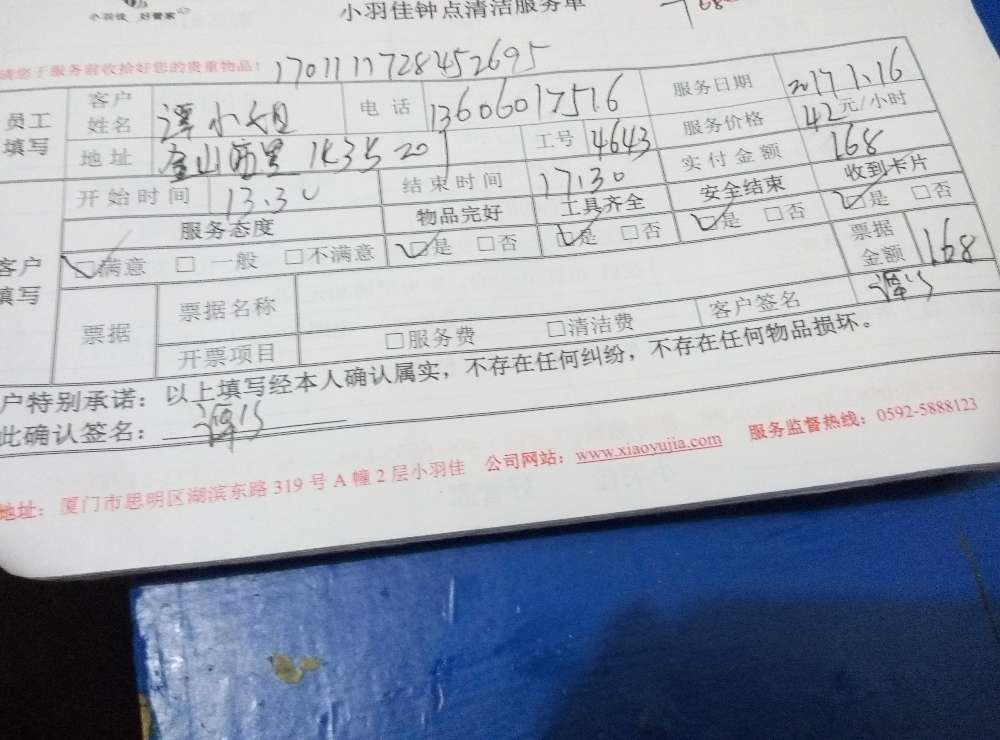 小羽佳 好管家
小羽佳钟点清洁服务单
请您于服务前收拾好您的贵重物品： 17011117728452695
员工填写 客户姓名 谭小姐 电话 13606017516 服务日期 2017.1.16
地址 工号 4643 服务价格 42元/小时
开始时间 13.30 结束时间 17.30 实付金额 168
客户填写 服务态度 物品完好 工具齐全 安全结束 收到卡片
☑满意 □一般 □不满意 ☑是 □否 ☑是 □否 ☑是 □否 ☑是 □否
票据 票据名称 票据金额 168
开票项目 □服务费 □清洁费 客户签名
户特别承诺：以上填写经本人确认属实，不存在任何纠纷，不存在任何物品损坏。
此确认签名：
地址：厦门市思明区湖滨东路319号A幢2层小羽佳 公司网站：www.xiaoyujia.com 服务监督热线：0592-5888123